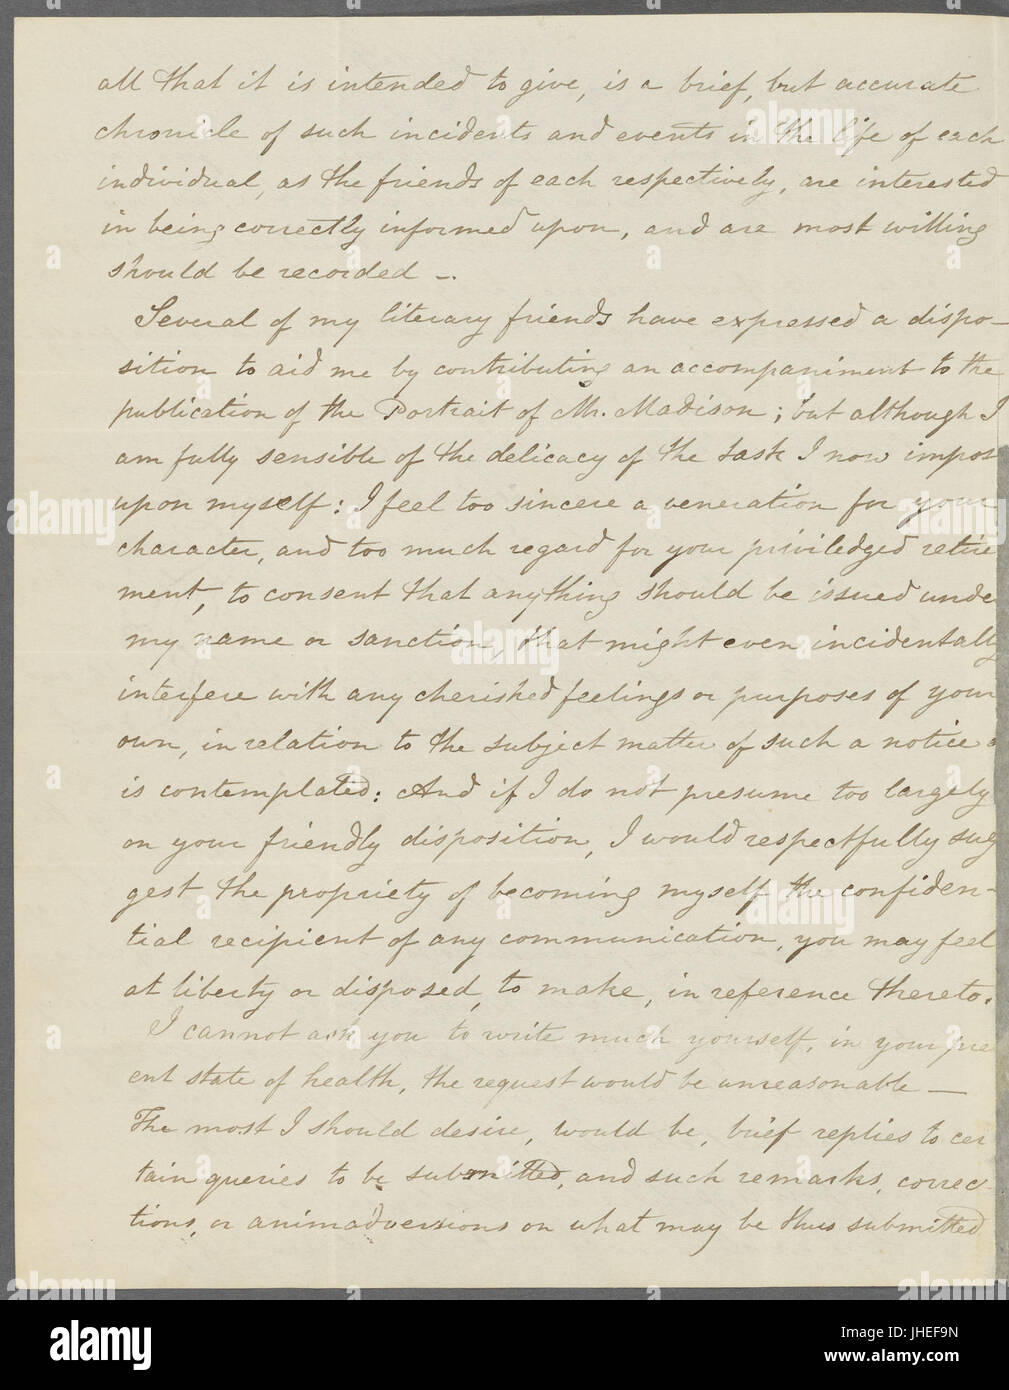 all that it is intended to give, is a brief, but accurate
chronicle of such incidents and events in the life of each
individual, as the friends of each respectively, are interested
in being correctly informed upon, and are most willing
should be recorded –.
Several of my literary friends have expressed a dispo-
sition to aid me by contributing an accompaniment to the
publication of the Portrait of Mr. Madison; but although I
am fully sensible of the delicacy of the task I now impos
upon myself: I feel too sincere a veneration for your
character, and too much regard for your priviledged retire
ment, to consent that anything should be issued unde
my name or sanction, that might even incidentally
interfere with any cherished feelings or purposes of your
own, in relation to the subject matter of such a notice a
is contemplated: And if I do not presume too largely
on your friendly disposition, I would respectfully sug
gest the propriety of becoming myself the confiden-
tial recipient of any communication, you may feel
at liberty or disposed, to make, in reference thereto.
I cannot ask you to write much yourself, in your pre
ent state of health, the request would be unreasonable —
The most I should desire, would be, brief replies to cer
tain queries to be submitted, and such remarks, correc-
tions, or animadversions on what may be thus submitted
alamy
Image ID: JHEF9N
www.alamy.com